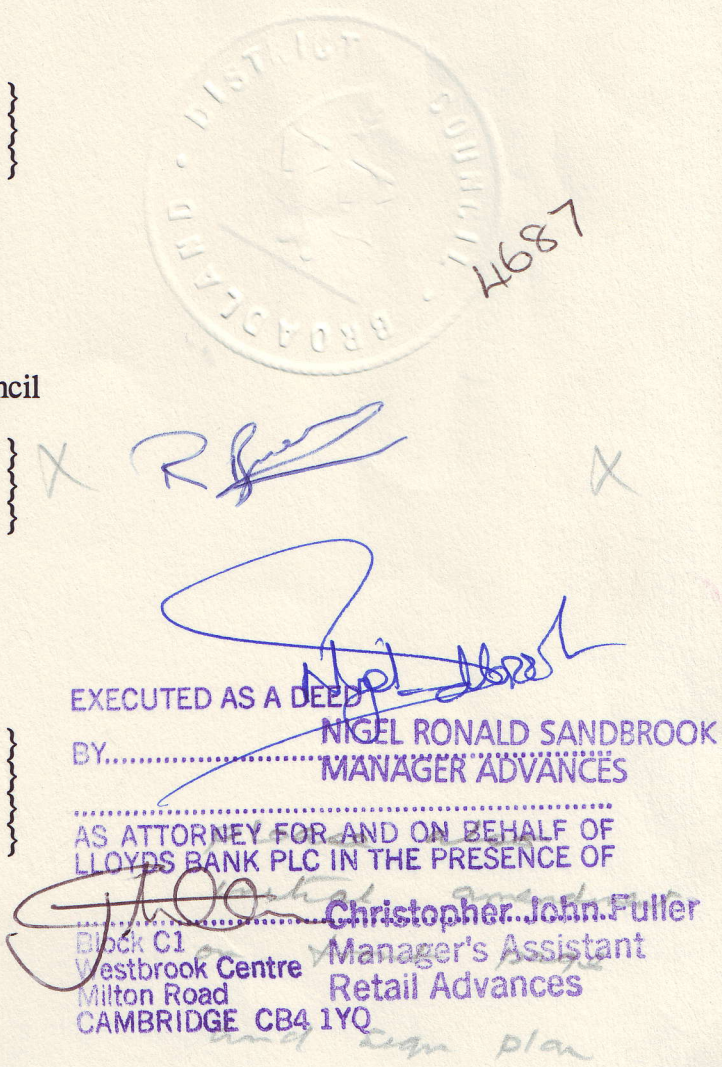 BROADLAND • DISTRICT COUNCIL •
4687
ncil
X
R
X
EXECUTED AS A DEED
BY
NIGEL RONALD SANDBROOK
MANAGER ADVANCES
AS ATTORNEY FOR AND ON BEHALF OF
LLOYDS BANK PLC IN THE PRESENCE OF
Christopher John Fuller
Block C1
Manager's Assistant
Westbrook Centre
Retail Advances
Milton Road
CAMBRIDGE CB4 1YQ
and sign plan